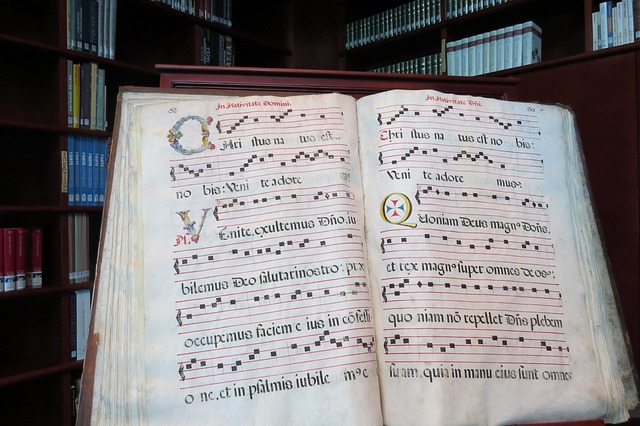 In Nativitate Domini.
Chri stus na tus est
no bis: Veni te adore
Venite, exultemus Dño. iu
bilemus Deo salutari nostro: pre
occupemus faciem e ius in cõfessi
o ne, et in psalmis iubile m9 e
In Nativitate Dni.
Chri stus na tus est no bis:
Veni te adore mus.
Quoniam Deus magn9 Dñs,
et rex magn9 super omnes deos:
quo niam nõ repellet Dñs plebem
suam, quia in manu eius sunt omnes